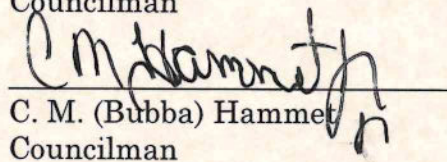 Councilman
C M Hammet Jr
C. M. (Bubba) Hammet
Councilman